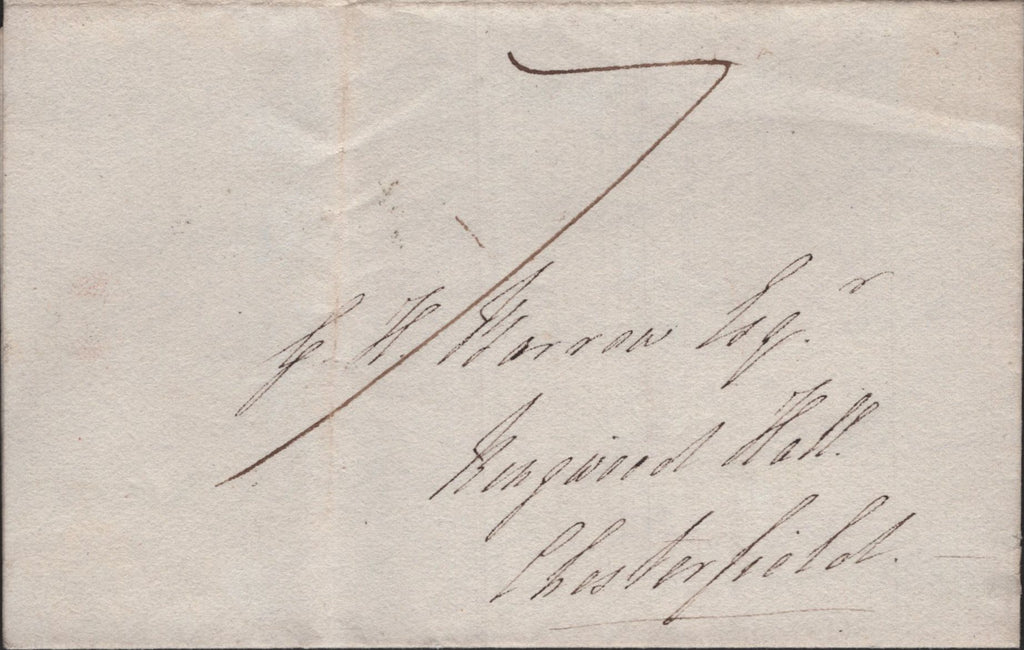 7
G. H. Barrow Esqr.
Ringwood Hall.
Chesterfield.